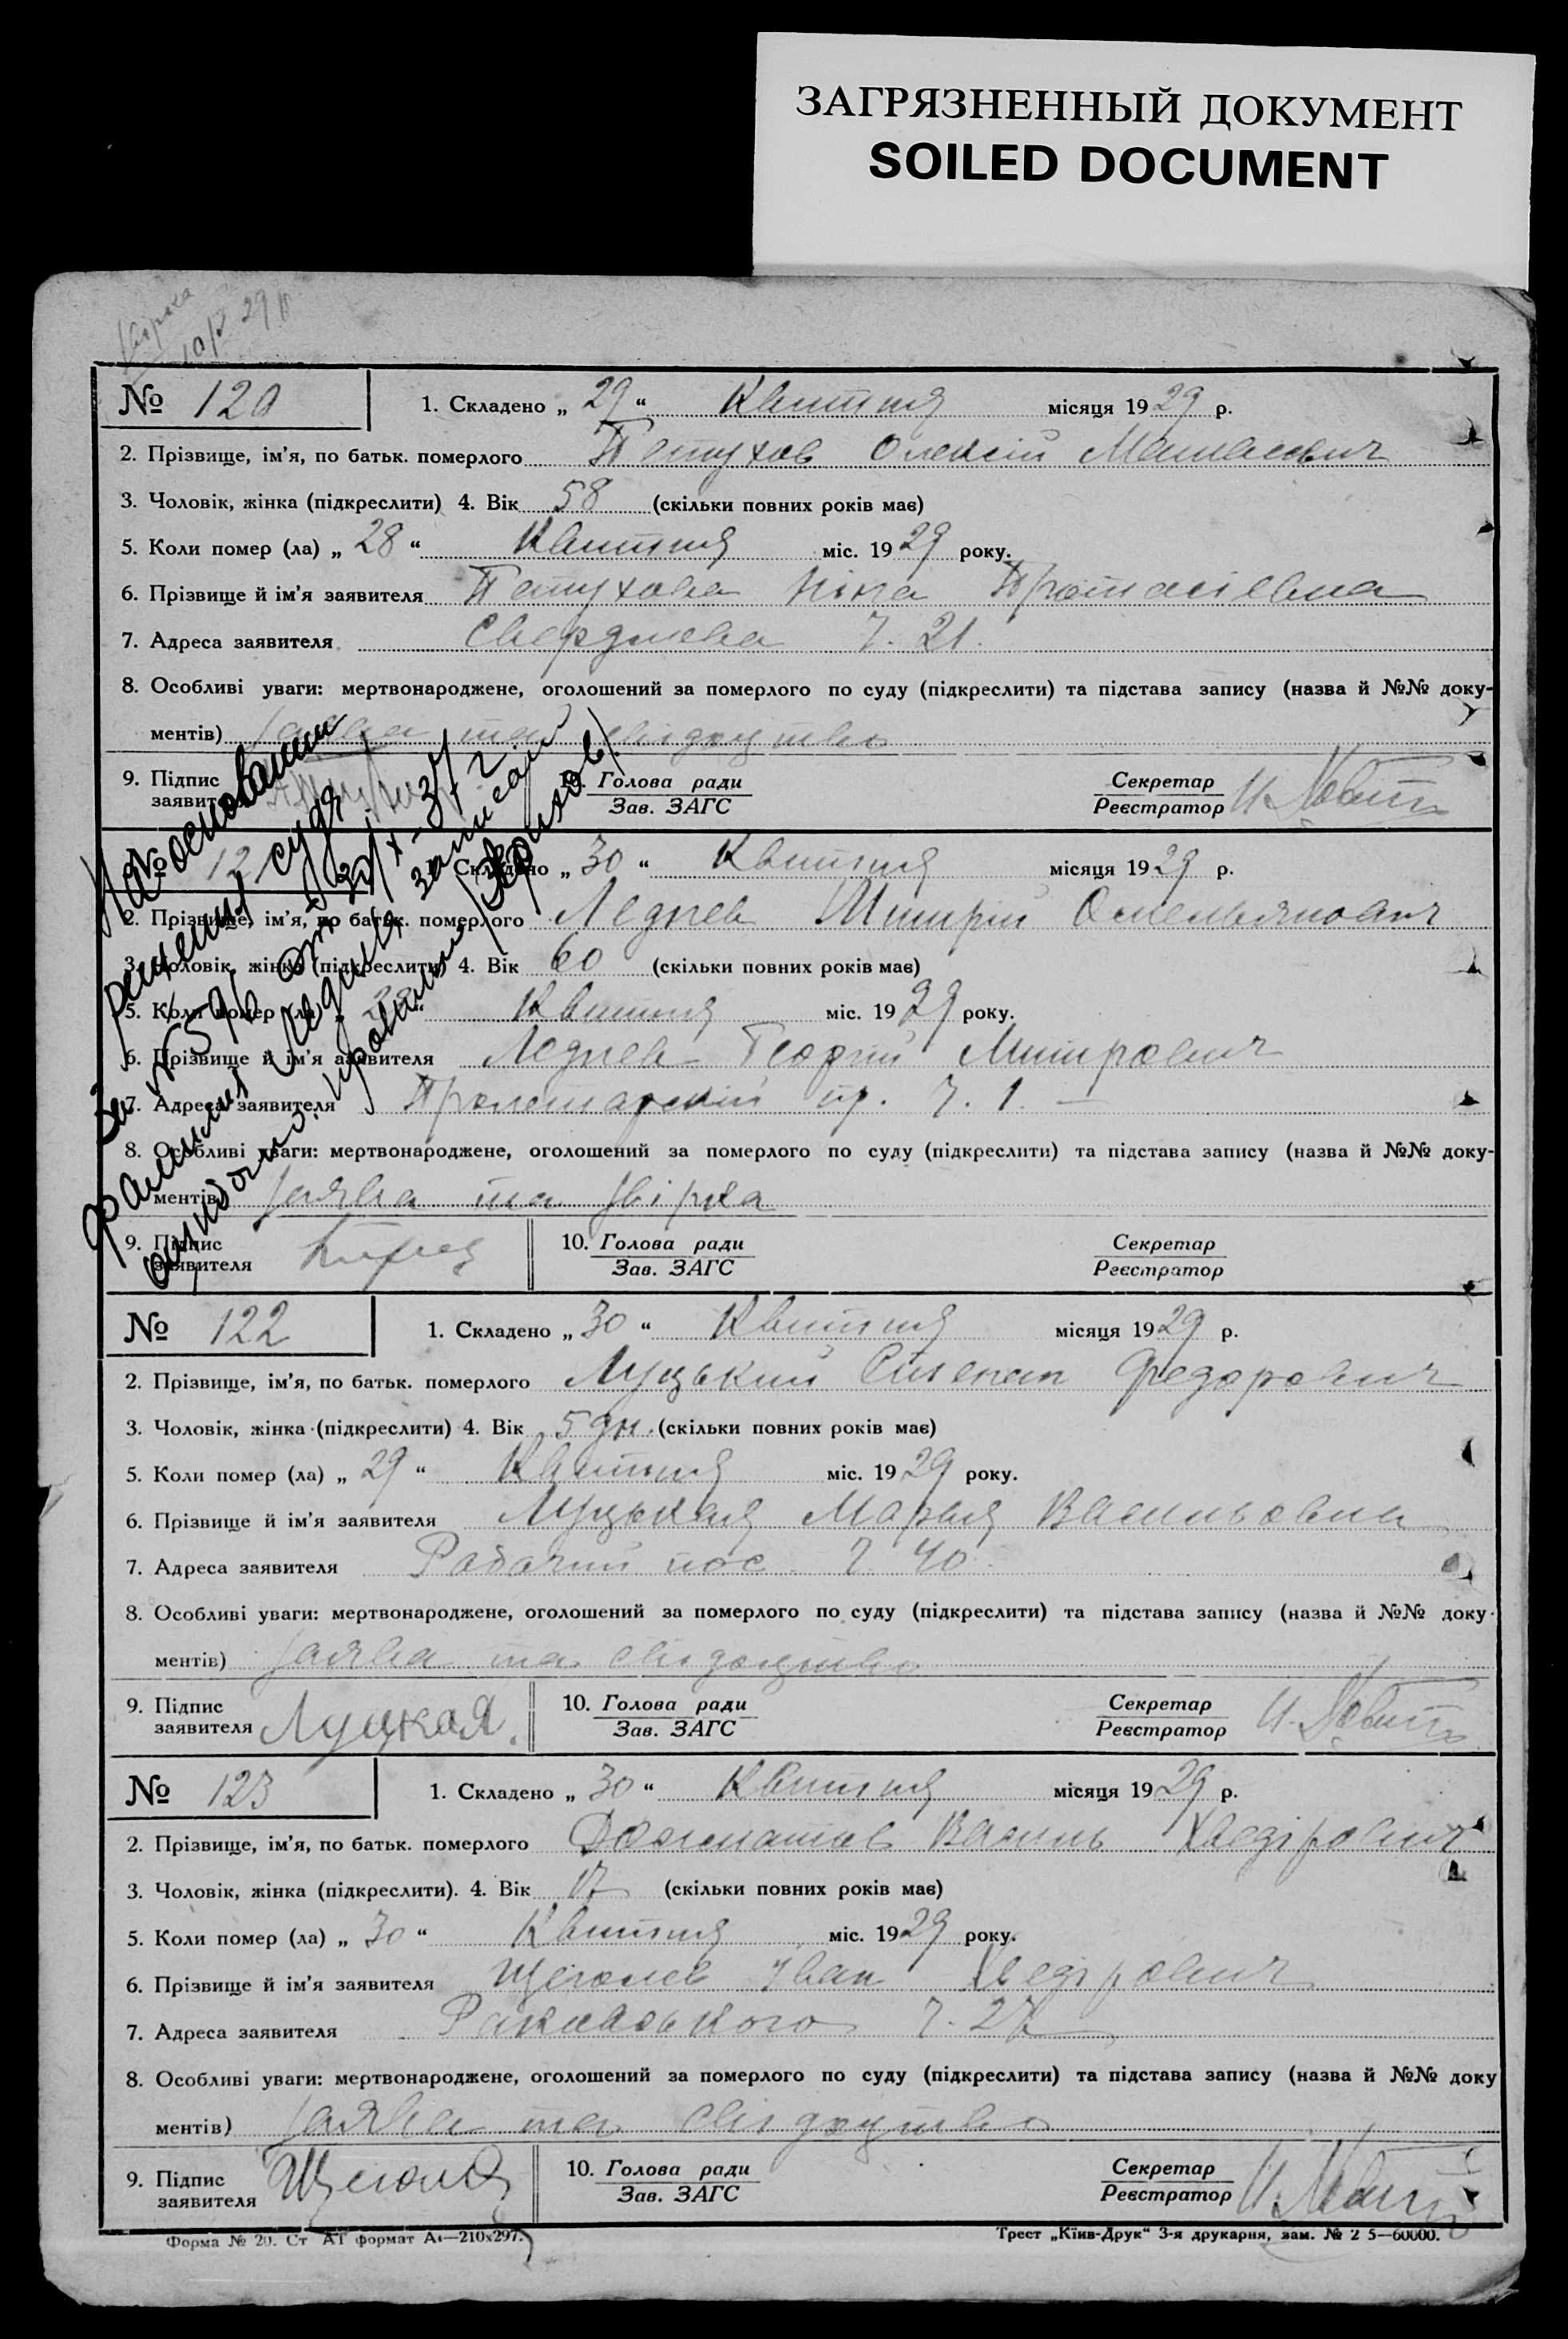 ЗАГРЯЗНЕННЫЙ ДОКУМЕНТ
SOILED DOCUMENT
№ 120 1. Складено „ 29 “ Квитня місяця 1929 р.
2. Прізвище, ім’я, по батьк. померлого Петухов Олексій
3. Чоловік, жінка (підкреслити) 4. Вік 58 (скільки повних років має)
5. Коли помер (ла) „ 28 “ Квитня міс. 1929 року.
6. Прізвище й ім’я заявителя Петухова Ніна Протасієвна
7. Адреса заявителя Свердлова ч. 21.
8. Особливі уваги: мертвонароджене, оголошений за померлого по суду (підкреслити) та підстава запису (назва й №№ доку-
ментів) Заява та свідоцтво
9. Підпис заявителя 10. Голова ради Зав. ЗАГС Секретар Реєстратор
№ 121 1. Складено „ 30 “ Квитня місяця 1929 р.
2. Прізвище, ім’я, по батьк. померлого Леднев Митрій Омельянович
3. Чоловік, жінка (підкреслити) 4. Вік 60 (скільки повних років має)
5. Коли помер (ла) „ “ Квитня міс. 1929 року.
6. Прізвище й ім’я заявителя Леднев Георгій Митрович
7. Адреса заявителя Пролетарский пр. ч. 1. —
8. Особливі уваги: мертвонароджене, оголошений за померлого по суду (підкреслити) та підстава запису (назва й №№ доку-
ментів) Заява та звірка
9. Підпис заявителя 10. Голова ради Зав. ЗАГС Секретар Реєстратор
На основании
решения суда
фамилия Леднев записан
ошибочно.
№ 122 1. Складено „ 30 “ Квитня місяця 1929 р.
2. Прізвище, ім’я, по батьк. померлого Луцький Степан Федорович
3. Чоловік, жінка (підкреслити) 4. Вік 5 дн. (скільки повних років має)
5. Коли помер (ла) „ 29 “ Квитня міс. 1929 року.
6. Прізвище й ім’я заявителя Луцькая Марья Васильовна
7. Адреса заявителя Рабочий пос. ч. 40
8. Особливі уваги: мертвонароджене, оголошений за померлого по суду (підкреслити) та підстава запису (назва й №№ доку-
ментів) Заява та свідоцтво
9. Підпис заявителя Луцкая. 10. Голова ради Зав. ЗАГС Секретар Реєстратор
№ 123 1. Складено „ 30 “ Квитня місяця 1929 р.
2. Прізвище, ім’я, по батьк. померлого Василь Хведірович
3. Чоловік, жінка (підкреслити). 4. Вік 17 (скільки повних років має)
5. Коли помер (ла) „ 30 “ Квитня міс. 1929 року.
6. Прізвище й ім’я заявителя Щеголев Іван Хведірович
7. Адреса заявителя Раковського ч. 27
8. Особливі уваги: мертвонароджене, оголошений за померлого по суду (підкреслити) та підстава запису (назва й №№ доку
ментів) Заява та свідоцтво
9. Підпис заявителя 10. Голова ради Зав. ЗАГС Секретар Реєстратор
Форма № 20. Ст АТ формат А4—210x297. Трест „Київ-Друк“ 3-я друкарня, зам. № 2 5—60000.